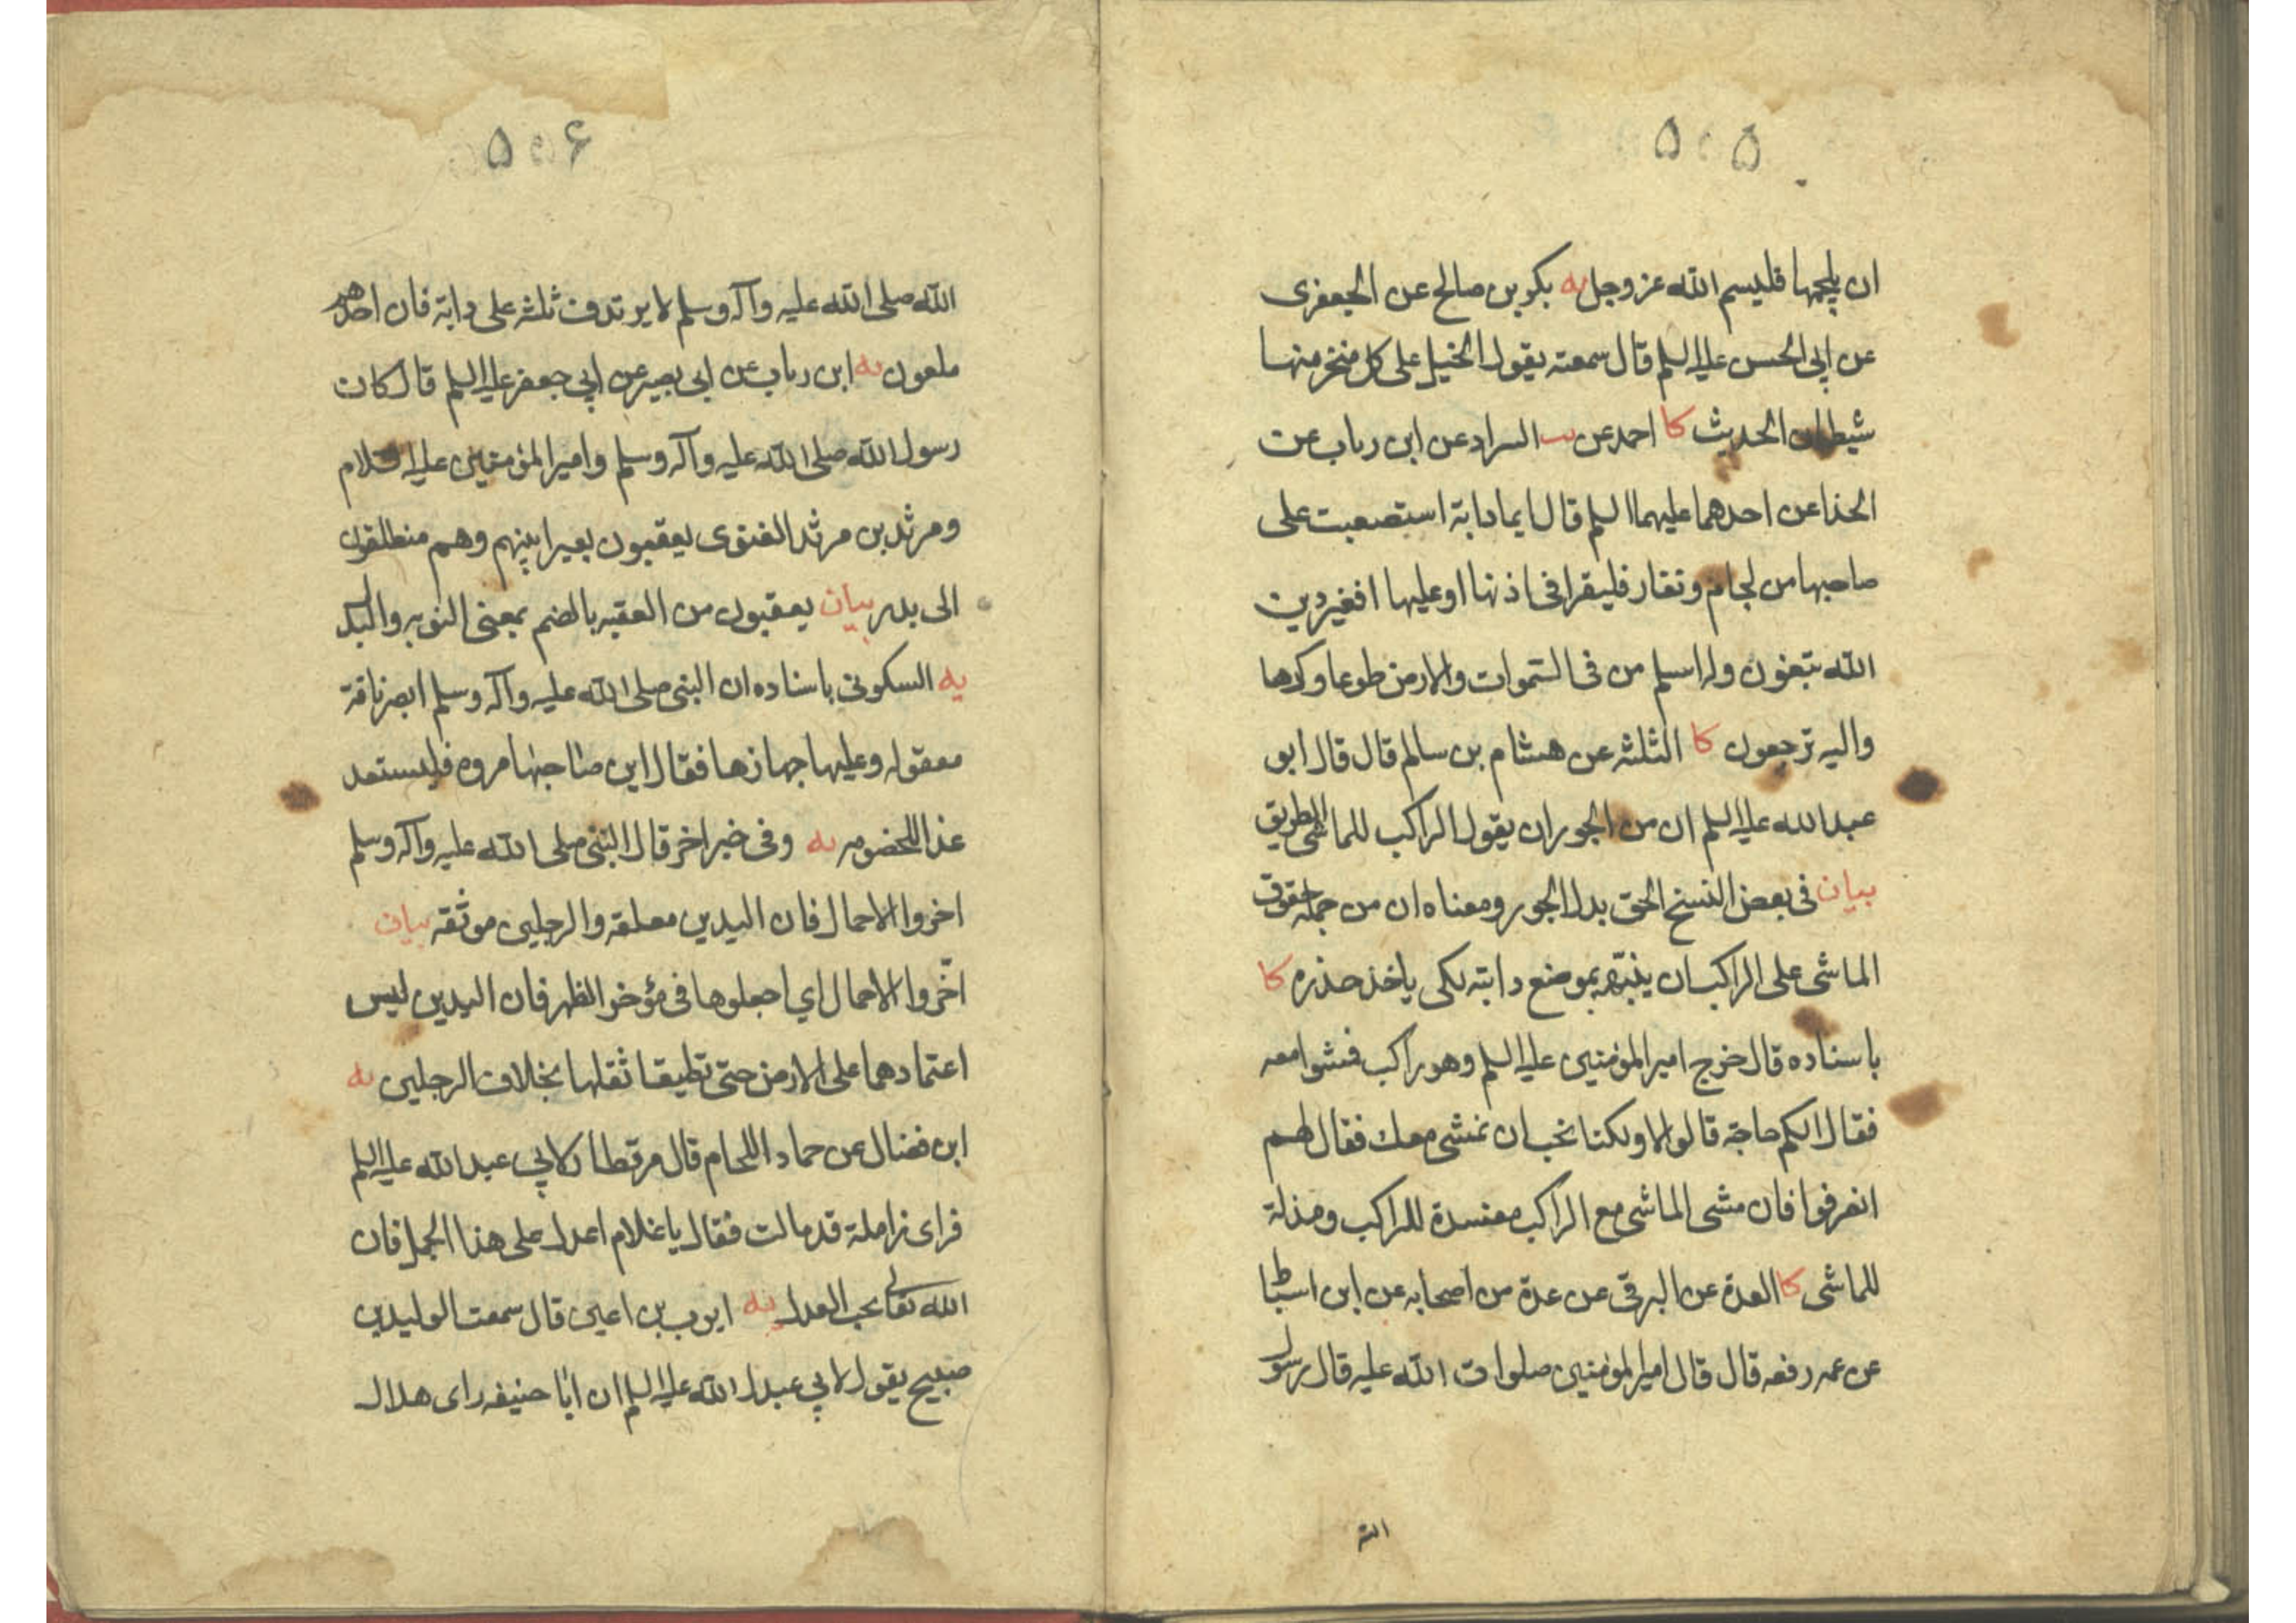 ۵۰۵
ان يلجمها فليسم الله عز وجل يه بكر بن صالح عن الجعفرى
عن ابي الحسن عليه السلم قال سمعته يقول الخيل على كل منخر منها
شيطان الحديث كا احمد عن السراد عن ابن رباب عن
الحذا عن احدهما عليهما السلم قال ايما دابة استصعبت على
صاحبها من لجام ونفار فليقرا فى اذنها او عليها افغير دين
الله تبغون وله اسلم من فى السموات والارض طوعا وكرها
واليه ترجعون كا الثلثه عن هشام بن سالم قال قال ابو
عبد الله عليه السلم ان من الجور ان يقول الراكب للماشى الطريق
بيان فى بعض النسخ الحق بدل الجور ومعناه ان من جملة حقوق
الماشى على الراكب ان ينبهه بموضع دابته لكى ياخذ حذره كا
باسناده قال خرج امير المؤمنين عليه السلم وهو راكب فمشوا معه
فقال الكم حاجة قالوا لا ولكنا نحب ان نمشى معك فقال لهم
انصرفوا فان مشى الماشى مع الراكب مفسدة للراكب ومذلة
للماشى كا العدة عن البرقى عن عدة من اصحابه عن ابن اسباط
عن عمه رفعه قال قال امير المؤمنين صلوات الله عليه قال رسول
الله
۵۰۶
الله صلى الله عليه وآله وسلم لا يرتدف ثلثه على دابة فان احدهم
ملعون يه ابن رباب عن ابى بصير عن ابي جعفر عليه السلم قال كان
رسول الله صلى الله عليه وآله وسلم وامير المؤمنين عليه السلام
ومرثد بن مرثد الغنوى يعقبون بعيرا بينهم وهم منطلقون
الى بدر بيان يعقبون من العقبه بالضم بمعنى النوبه والبدل
يه السكونى باسناده ان النبى صلى الله عليه وآله وسلم ابصر ناقة
معقوله وعليها جهازها فقال اين صاحبها مروه فليستعد
غدا للخصومه يه وفى خبر اخر قال النبى صلى الله عليه وآله وسلم
اخروا الاحمال فان اليدين معلقه والرجلين موثقه بيان
اخّروا الاحمال اي اجعلوها فى مؤخر الظهر فان اليدين ليس
اعتمادهما على الارض حتى تطيقا ثقلها بخلاف الرجلين يه
ابن فضال عن حماد اللحام قال مر قطار لابي عبد الله عليه السلم
فراى زاملة قد مالت فقال يا غلام اعدل على هذا الجمل فان
الله تعالى يحب العدل يه ايوب بن اعين قال سمعت الوليد بن
صبيح يقول لابي عبد الله عليه السلم ان ابا حنيفه راى هلال